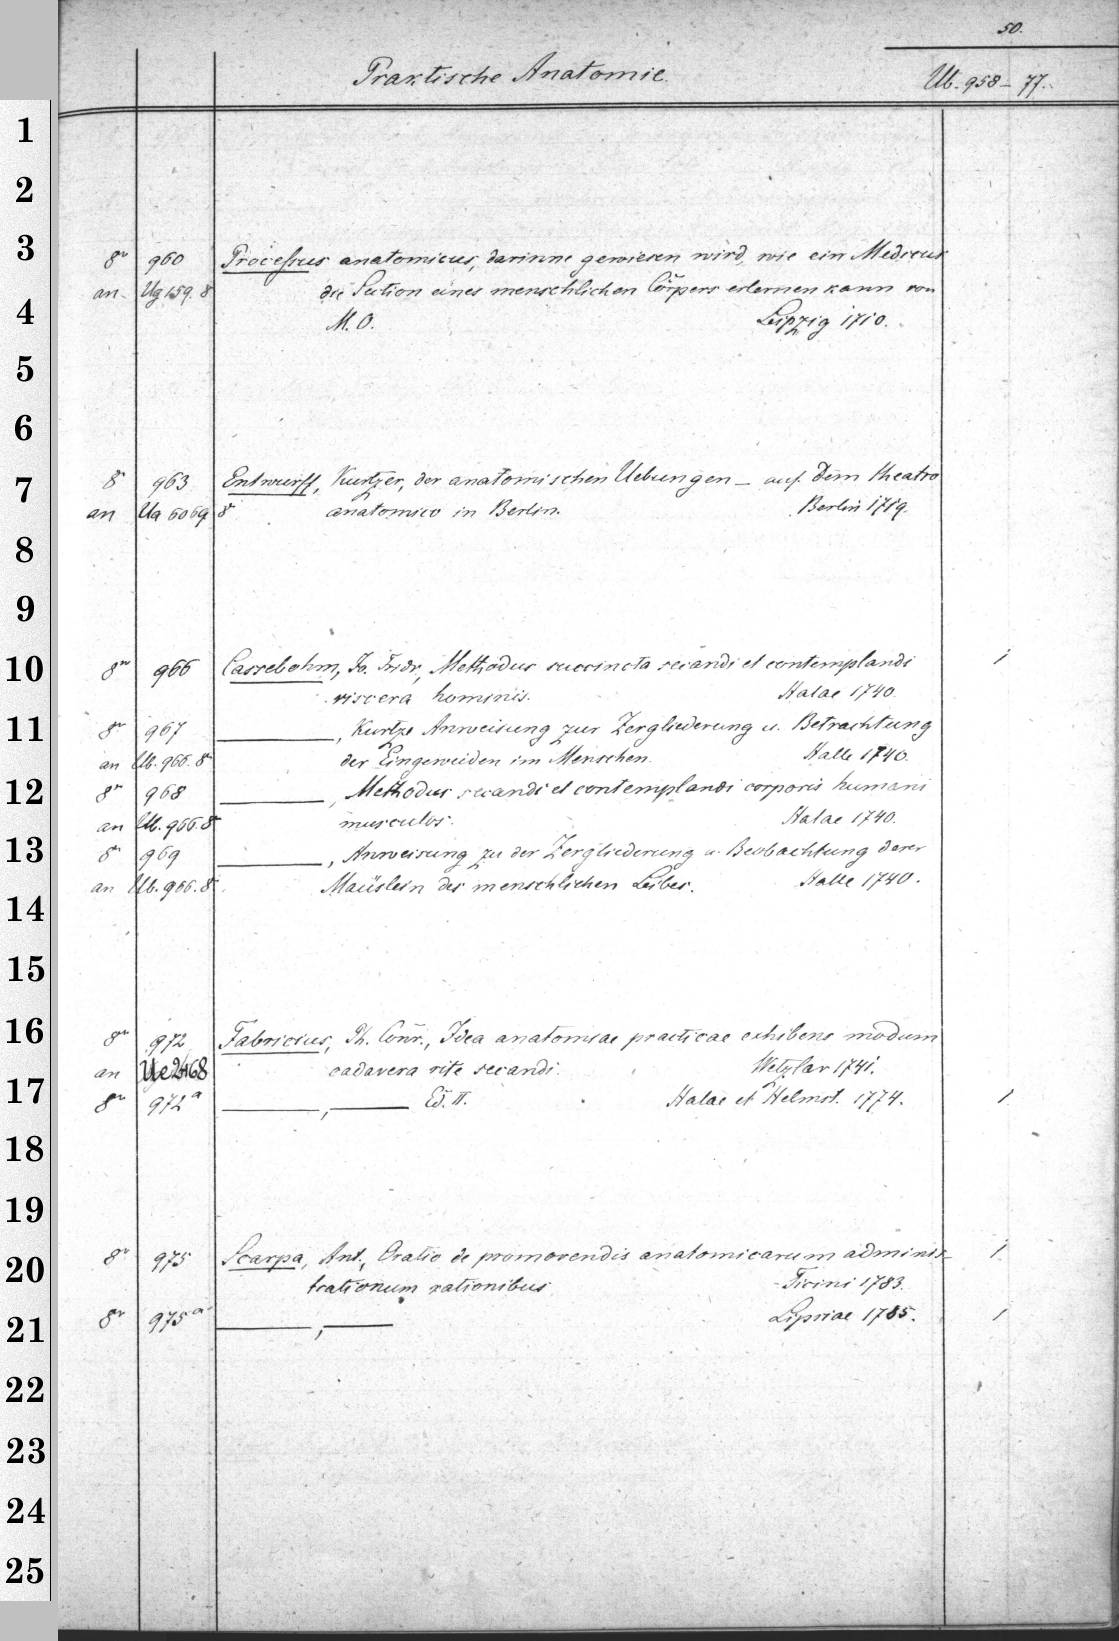 50.
Praktische Anatomie.
Ub. 958 – 77.
1
2
3
8º 960 Processus anatomicus, darinne gewiesen wird, wie ein Medicus
an Ug 159. 8 die Section eines menschlichen Cörpers erlernen kann von
4
M. O. Leipzig 1710.
5
6
7
8º 963 Entwurff, Kurtzer, der anatomischen Uebungen – auf dem theatro
an Ua 6069 8 anatomico in Berlin. Berlin 1719.
8
9
10
8º 966 Cassebohm, Jo. Fridr., Methodus succincta secandi et contemplandi 1
viscera hominis. Halae 1740.
11
8º 967 ———, Kurtze Anweisung zur Zergliederung u. Betrachtung
an Ub. 966. 8º der Eingeweiden im Menschen. Halle 1740.
12
8º 968 ———, Methodus secandi et contemplandi corporis humani
an Ub. 966. 8 musculos. Halae 1740.
13
8º 969 ———, Anweisung zu der Zergliederung u. Beobachtung derer
an Ub. 966. 8º Mäuslein des menschlichen Leibes. Halle 1740.
14
15
16
8º 972 Fabricius, Ph. Conr., Idea anatomiae practicae exhibens modum
an Ue 2468 cadavera rite secandi. Wetzlar 1741.
17
8º 972a ———, ——— Ed. II. Halae et Helmst. 1774. 1
18
19
20
8º 975 Scarpa, Ant., Oratio de promovendis anatomicarum adminis- 1
trationum rationibus Ticini 1783.
21
8º 975a ———, ——— Lipsiae 1785. 1
22
23
24
25